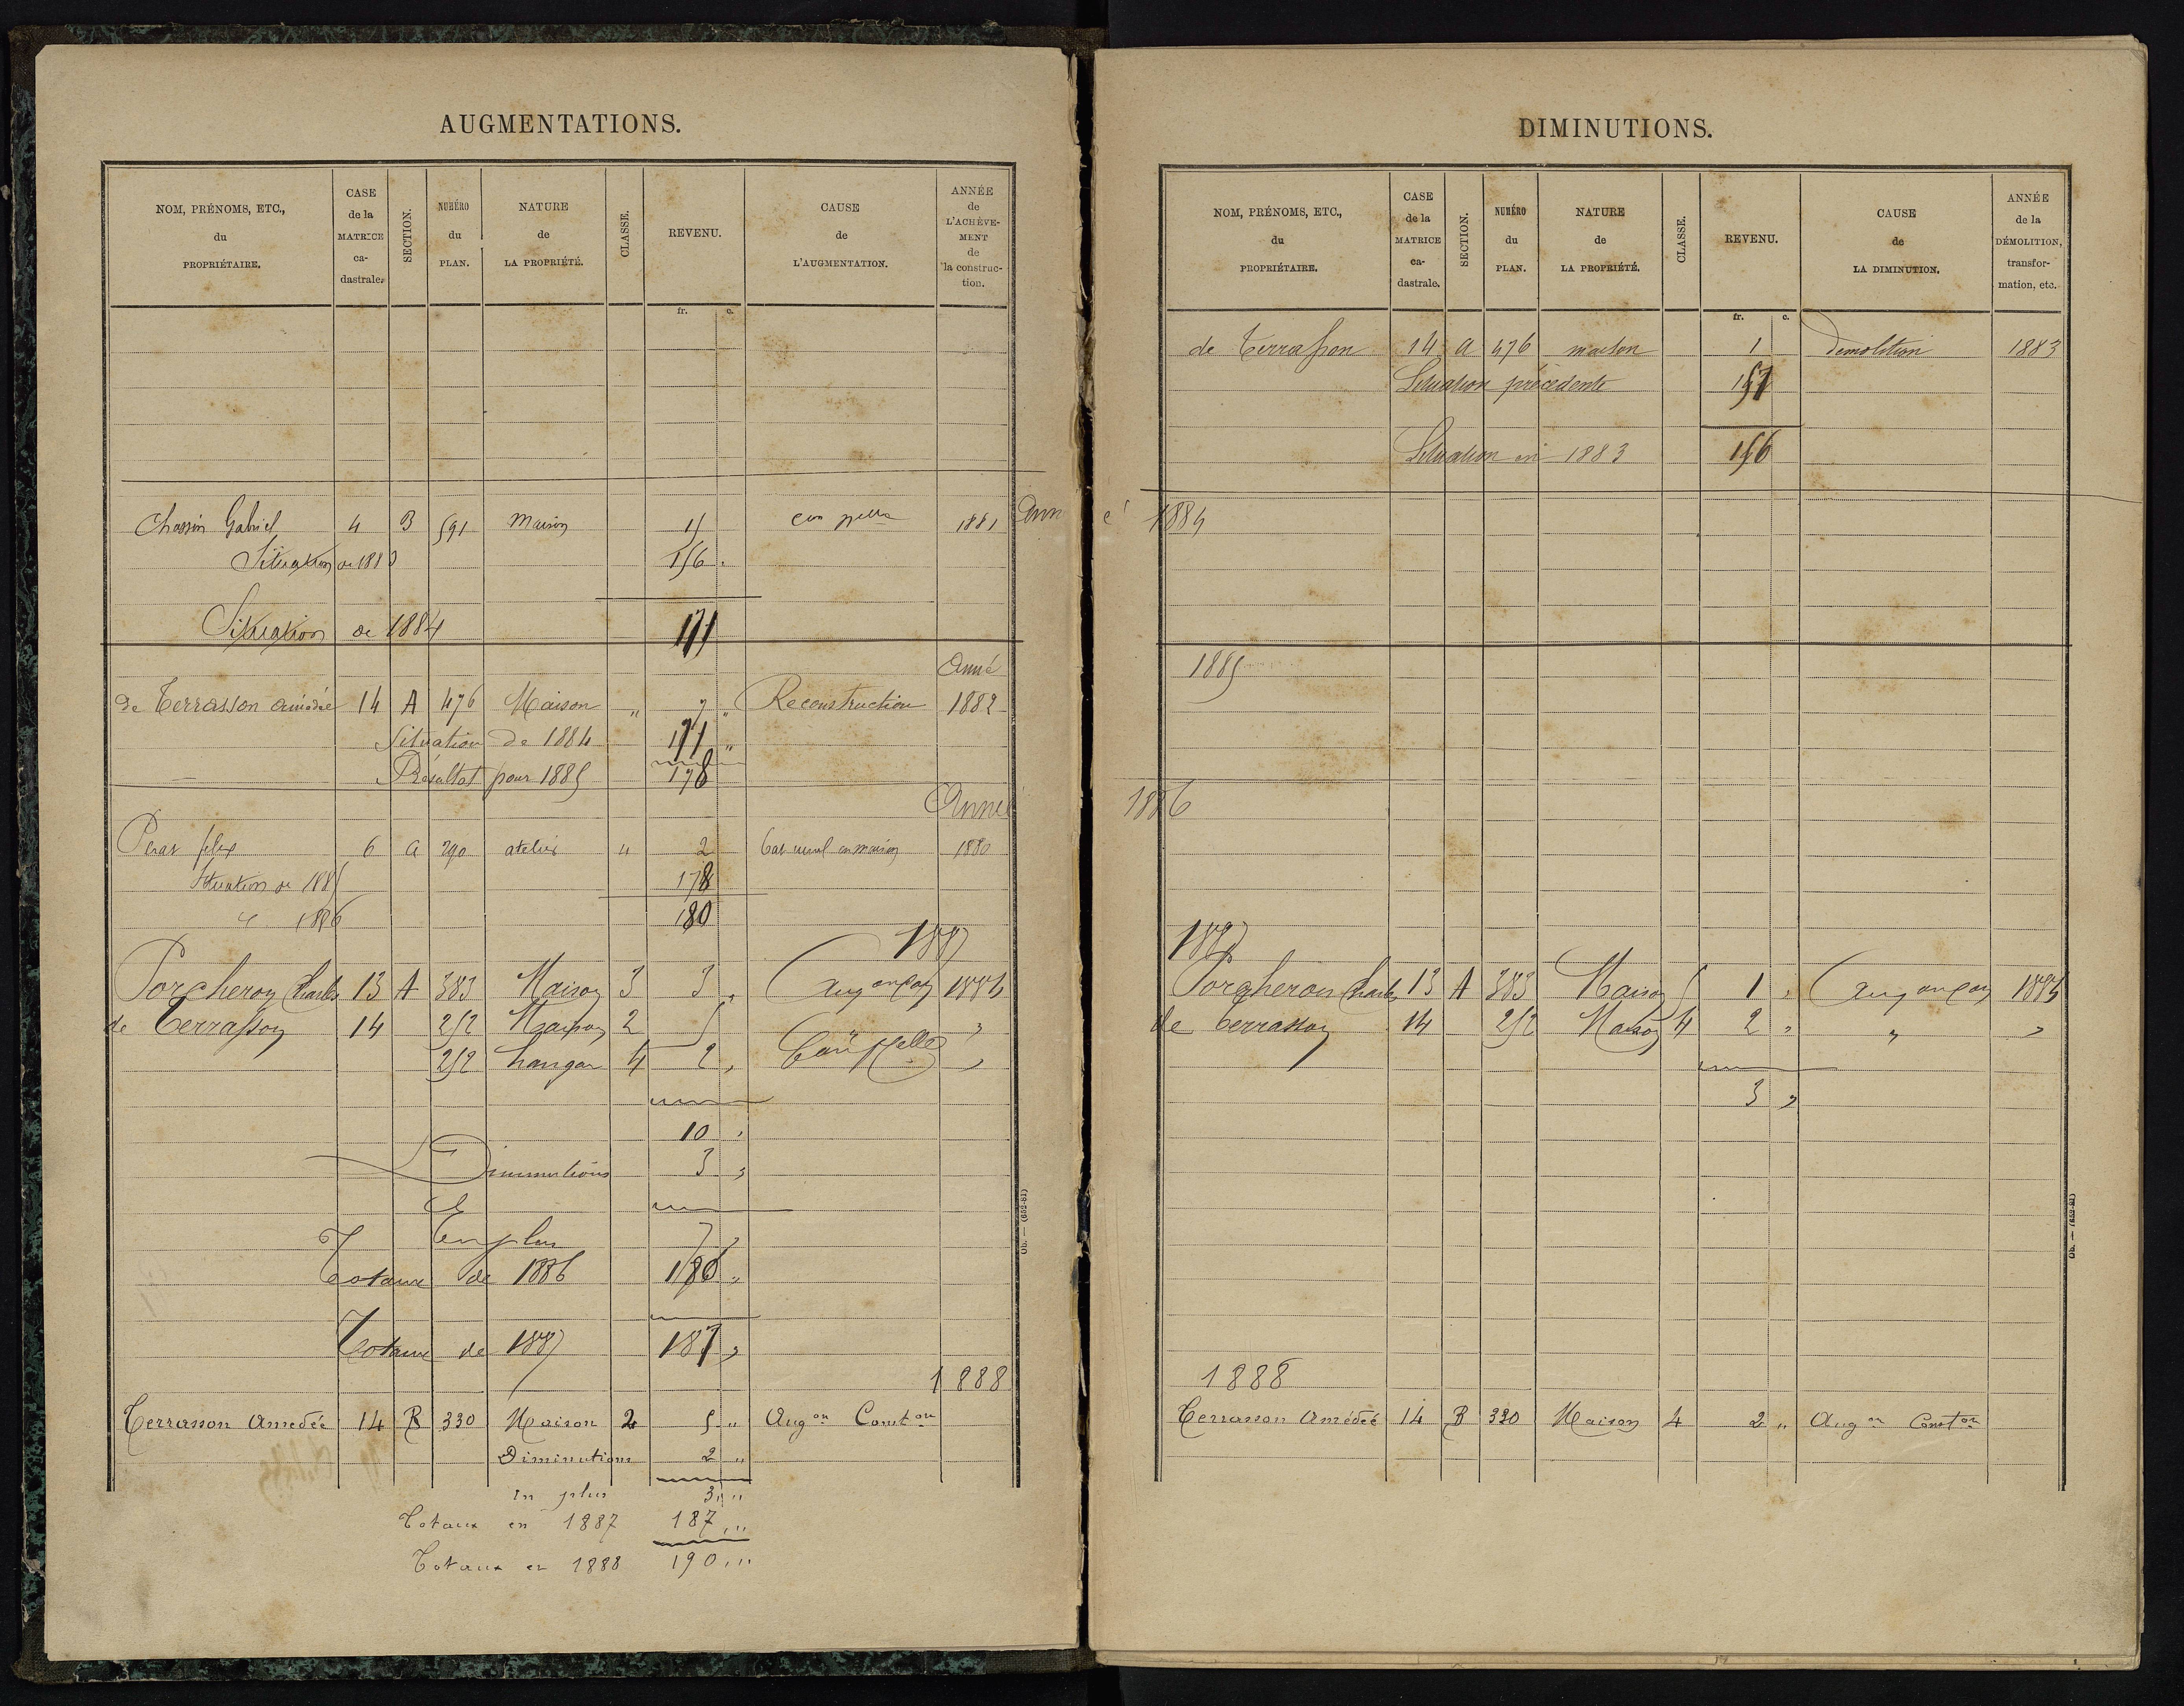 AUGMENTATIONS.
NOM, PRÉNOMS, ETC., du PROPRIÉTAIRE.
CASE de la MATRICE ca-dastrale.
SECTION.
NUMÉRO du PLAN.
NATURE de LA PROPRIÉTÉ.
CLASSE.
REVENU.
CAUSE de L'AUGMENTATION.
ANNÉE de L'ACHÈVE-MENT de la construc-tion.
fr. c.
Gabriel 4 B 591 Maison 15 1881
Situation de 1883 156
Situation de 1884 171
Anné
de Terrasson amédée 14 A 476 Maison " 7 " Reconstruction 1882
Situation de 1884 171 "
Résultat pour 1885 178
Année
6 a 290 atelier " 2 en maison 1880
Situation de 1885 178
1886 180
1887
Porcheron Charles 13 A 383 Maison 3 3 "
de Terrasson 14 252 Maison 2 5 "
252 hangar 4 2 "
10 "
Diminutions 3 "
En plus 7 "
Totaux de 1886 180 "
Totaux de 1887 187 "
1888
Terrasson Amédée 14 B 330 Maison 2 5 " Augon Conston
Diminutions 2 "
En plus 3 , "
Totaux en 1887 187 , "
Totaux en 1888 190 , "
Ob. — (652-81)
DIMINUTIONS.
NOM, PRÉNOMS, ETC., du PROPRIÉTAIRE.
CASE de la MATRICE ca-dastrale.
SECTION.
NUMÉRO du PLAN.
NATURE de LA PROPRIÉTÉ.
CLASSE.
REVENU.
CAUSE de LA DIMINUTION.
ANNÉE de la DÉMOLITION, transfor-mation, etc.
fr. c.
de Terrasson 14 a 476 maison 1 démolition 1883
Situation précédente 157
Situation en 1883 156
Année 1884
1885
1886
1887
Porcheron Charles 13 A 383 Maison 5 1 "
de Terrasson 14 252 Maison 4 2 " " "
3 "
1888
Terrasson Amédée 14 B 330 Maison 4 2 " Augon Conston
Ob. — (652-81)